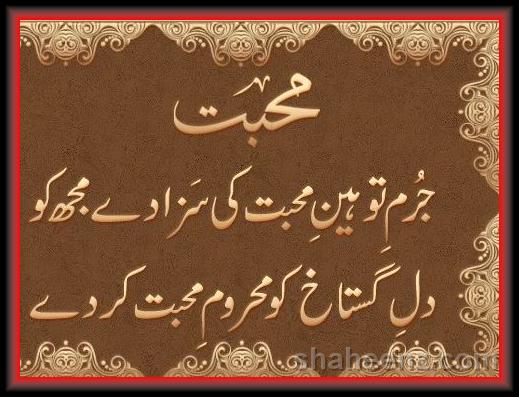 محبت
جُرمِ توہینِ محبت کی سَزا دے مجھ کو
دلِ گستاخ کو محرومِ محبت کر دے
shaheene.com